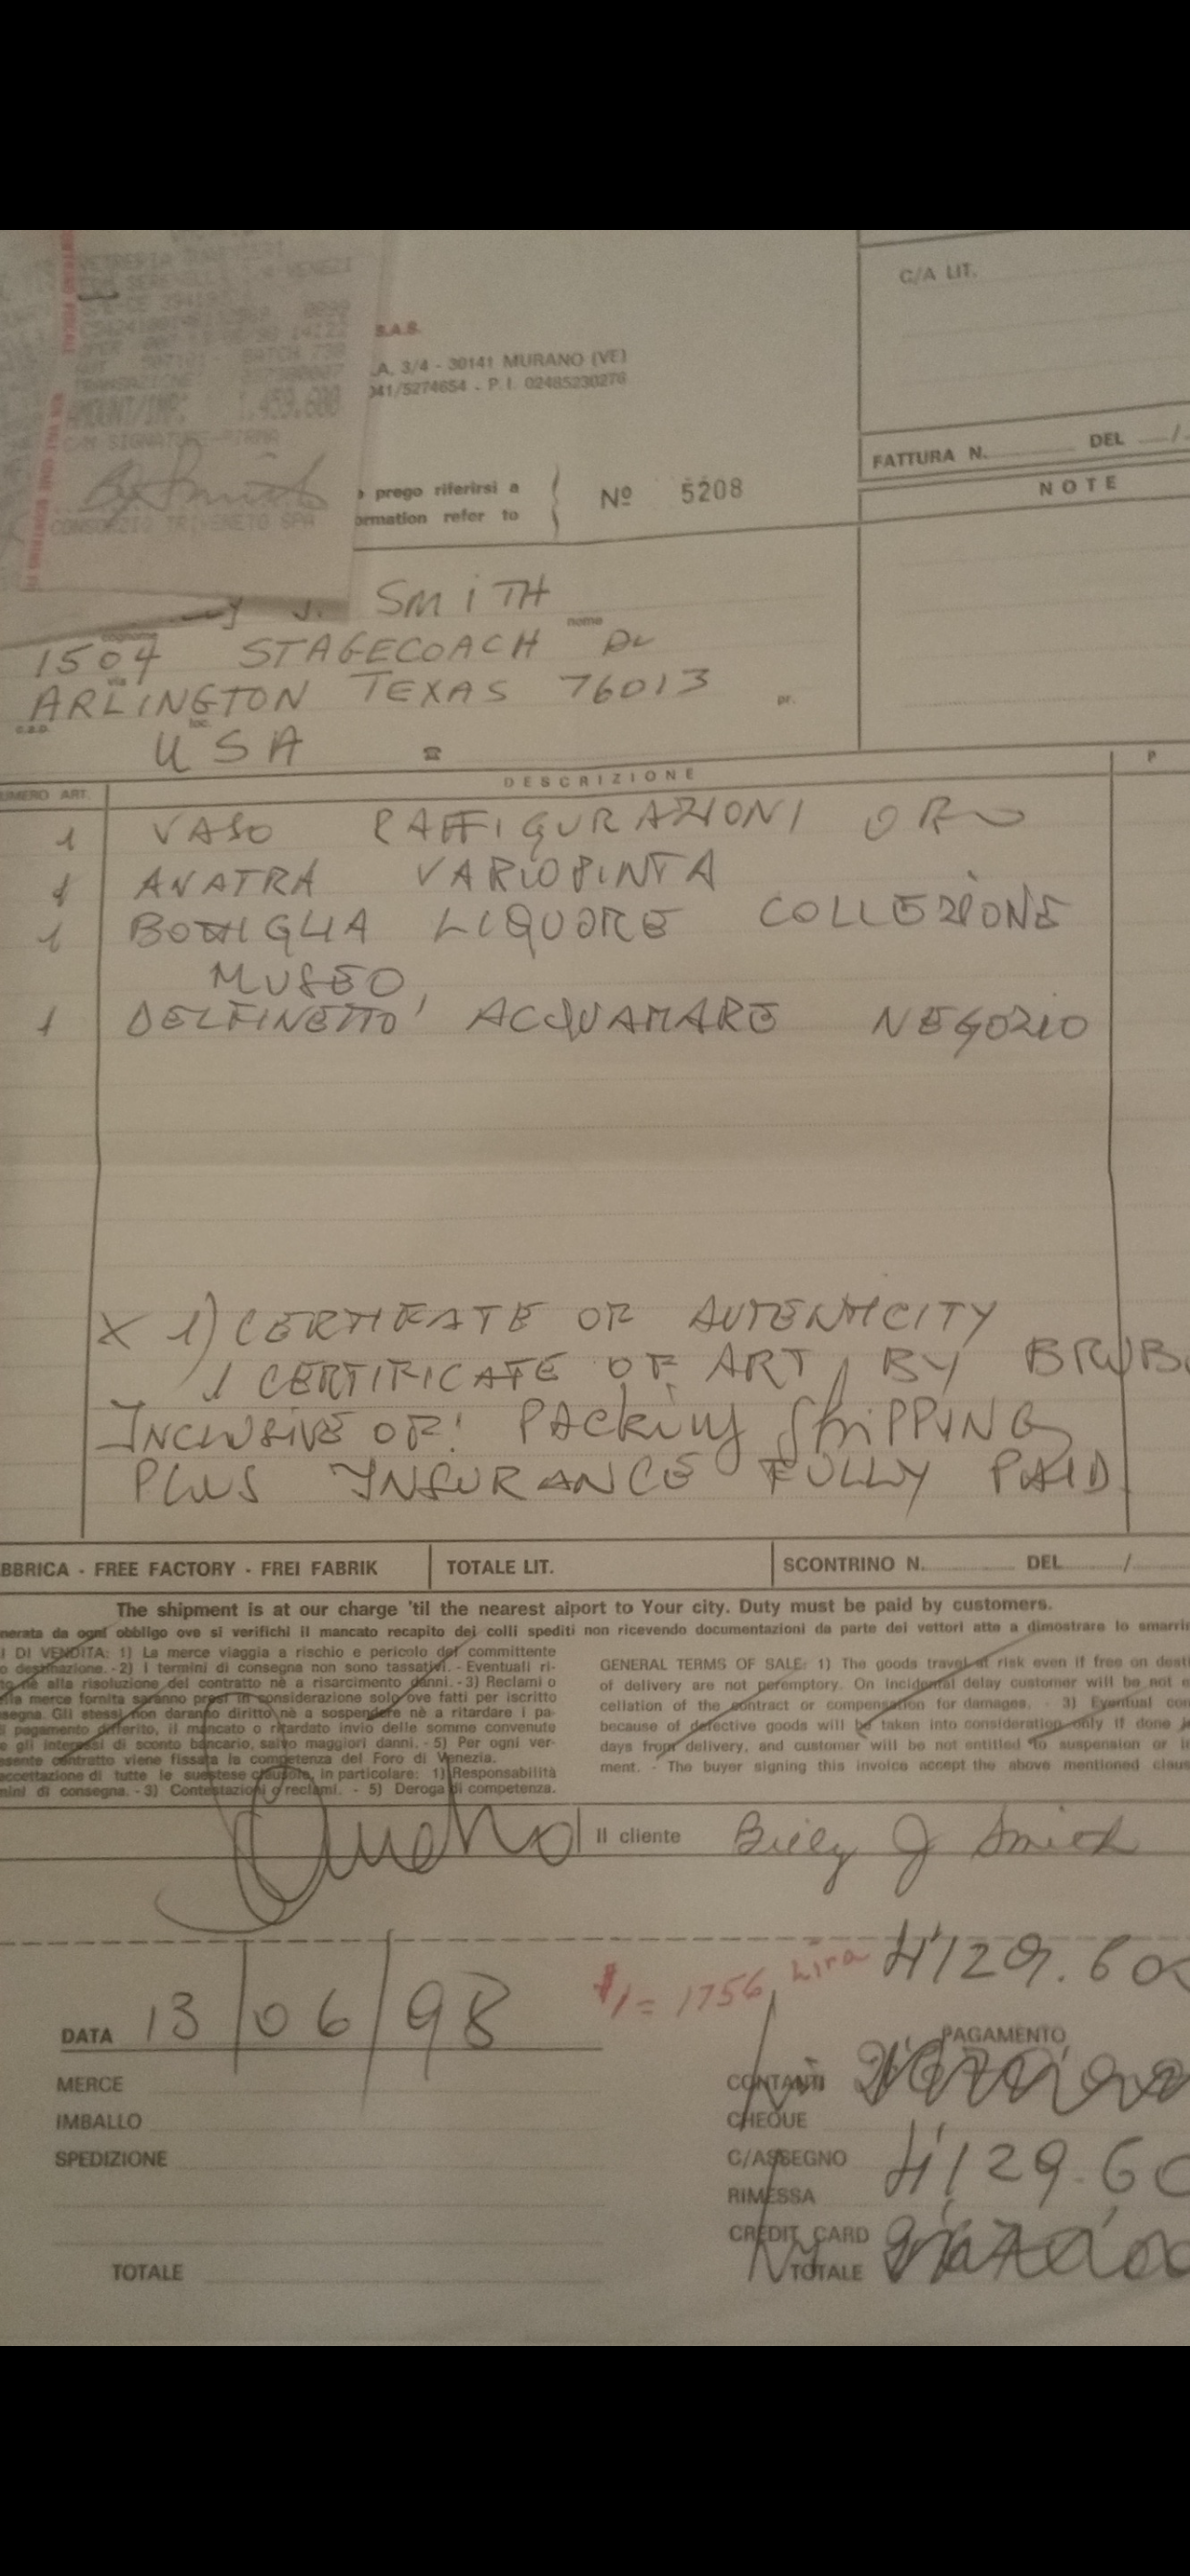 VENEZI
AMOUNT/IMP: 1.459.600
C/M SIGNATURE-FIRMA
B J Smith
CONSORZIO TRIVENETO SPA
S.A.S.
A. 3/4 - 30141 MURANO (VE)
041/5274654 - P.I. 02485230276
C/A LIT.
FATTURA N. DEL /
NOTE
prego riferirsi a
ormation refer to
Nº 5208
y J. SMITH
cognome nome
1504 STAGECOACH Dr
via
ARLINGTON TEXAS 76013
c.a.p. loc. pr.
USA
UMERO ART. DESCRIZIONE P
1 VASO RAFFIGURAZIONI ORO
1 ANATRA VARIOPINTA
1 BOTTIGLIA LIQUORE COLLEZIONE
MUSEO
1 DELFINETTO ACQUAMARE NEGOZIO
X 1) CERTIFICATE OF AUTENTICITY
1 CERTIFICATE OF ART, BY
INCLUSIVE OF: PACKING SHIPPING
PLUS INSURANCE FULLY PAID
BBRICA - FREE FACTORY - FREI FABRIK TOTALE LIT. SCONTRINO N. DEL /
The shipment is at our charge 'til the nearest aiport to Your city. Duty must be paid by customers.
nerata da ogni obbligo ove si verifichi il mancato recapito dei colli spediti non ricevendo documentazioni da parte dei vettori atte a dimostrare lo smarrim
I DI VENDITA: 1) La merce viaggia a rischio e pericolo del committente
o destinazione. - 2) I termini di consegna non sono tassativi. - Eventuali ri-
to nè alla risoluzione del contratto nè a risarcimento danni. - 3) Reclami o
lla merce fornita saranno presi in considerazione solo ove fatti per iscritto
segna. Gli stessi non daranno diritto nè a sospendere nè a ritardare i pa-
i pagamento differito, il mancato o ritardato invio delle somme convenute
e gli interessi di sconto bancario, salvo maggiori danni. - 5) Per ogni ver-
esente contratto viene fissata la competenza del Foro di Venezia.
accettazione di tutte le suestese clausole, in particolare: 1) Responsabilità
mini di consegna. - 3) Contestazioni o reclami. - 5) Deroga di competenza.
GENERAL TERMS OF SALE: 1) The goods travel at risk even if free on desti
of delivery are not peremptory. On incidental delay customer will be not e
cellation of the contract or compensation for damages. - 3) Eventual con
because of defective goods will be taken into consideration only if done
days from delivery, and customer will be not entitled to suspension or in
ment. - The buyer signing this invoice accept the above mentioned claus
Il cliente Billy J Smith
$1 = 1756 Lira 4'129.600
DATA 13/06/98
PAGAMENTO
MERCE
CONTANTI
IMBALLO
CHEQUE
SPEDIZIONE
C/ASSEGNO 4'129.60
RIMESSA
CREDIT CARD
TOTALE
TOTALE